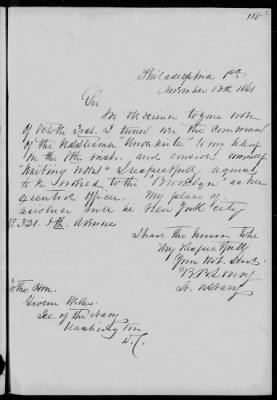 115
Philadelphia Pa
November 13th 1861
Sir
In obedience to your order
of October I turned over the command
of the USS Steamer "
on the 8th inst. and consider myself
"Waiting Orders" I respectfully request
to be ordered to the "Brooklyn" as her
executive officer. My place of
address will be New York City
No 321. 5th Avenue
I have the honor to be
Very Respectfully
Your Obt. Servt.
Lt. US Navy
To the Hon.
Gideon Welles
Sec. of the Navy
Washington
D.C.